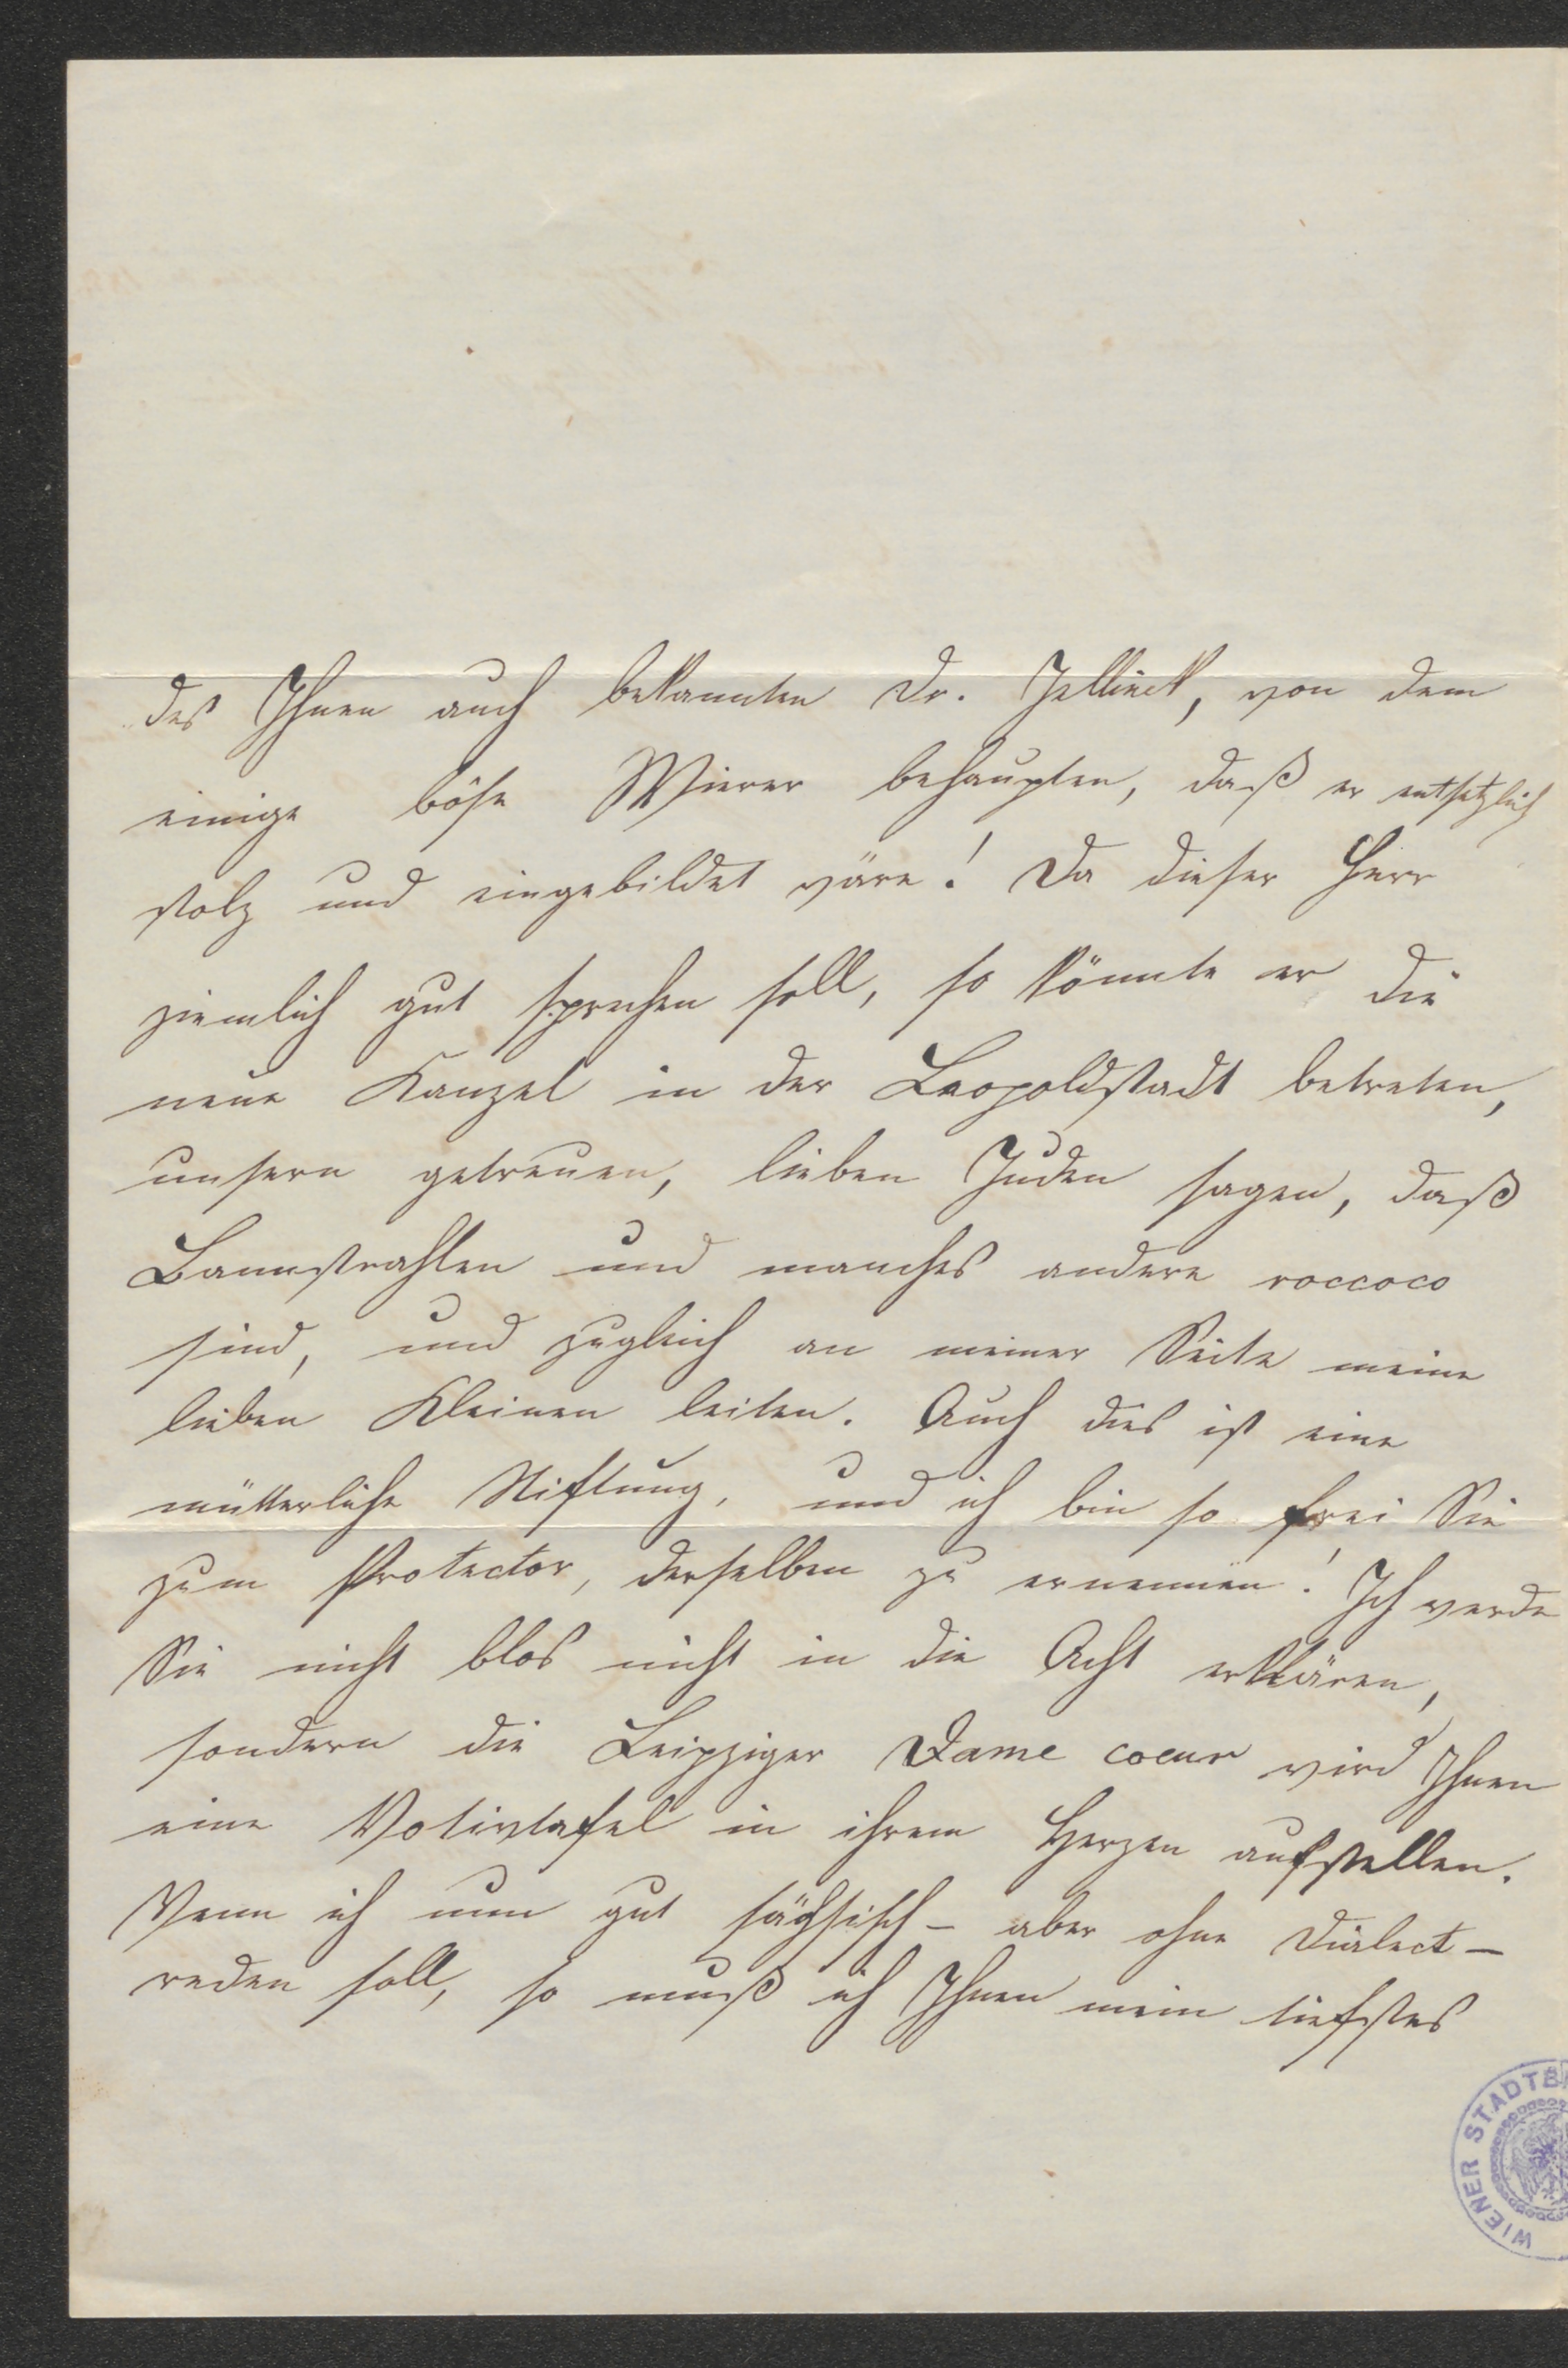 des Ihnen auch bekannten Dr. Jellinek, von dem
einige böse Wiener behaupten, daß er entsetzlich
stolz und eingebildet wäre! Da dieser Herr
ziemlich gut sprechen soll, so könnte er die
neue Kanzel in der Leopoldstadt betreten,
unsern getreuen, lieben Juden sagen, daß
Bannstrahlen und manches andere roccoco
sind, und zugleich an meiner Seite meine
lieben Kleinen leiten. Auch dies ist eine
mütterliche Stiftung, und ich bin so frei Sie
zum Protector, derselben zu ernennen! Ich werde
Sie nicht blos nicht in die Acht erklären,
sondern die Leipziger Dame coeur wird Ihnen
eine Votivtafel in ihrem Herzen aufstellen.
Wenn ich nun gut sächsisch – aber ohne Dialect –
reden soll, so muß ich Ihnen mein tiefstes
WIENER STADTBI